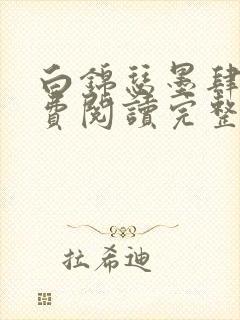 白錦瑟墨肆
費閱讀完整
拉希迪